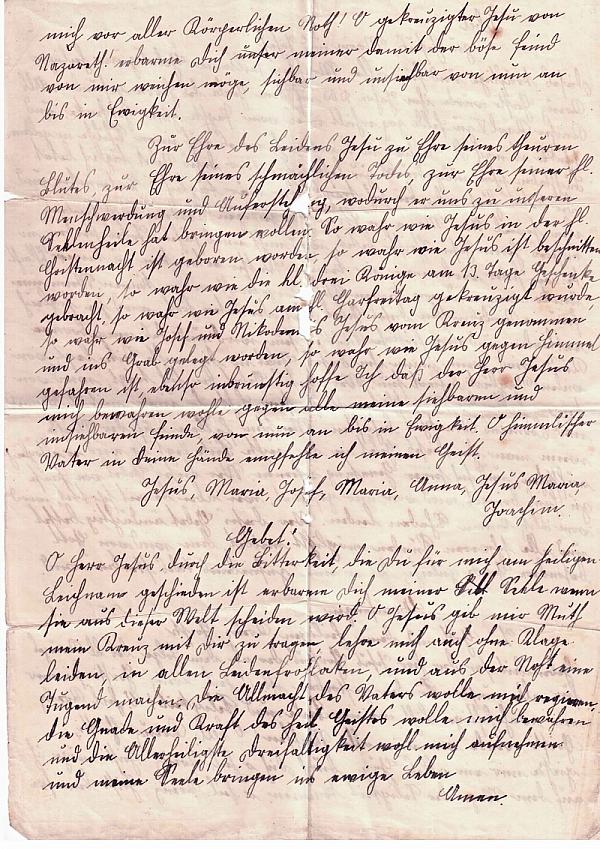 mich vor aller Körperlichen Noth! O gekreuzigter Jesu von
Nazareth! erbarme Dich unser meiner damit der böse Feind
von mir weichen möge, sichbar und unsichbar von nun an
bis in Ewigkeit.
Zur Ehre des Leidens Jesu zu Ehre seines theuren
Blutes, zur Ehre seines schmächlichen Todes, zur Ehre seiner hl.
Menschwerdung und Auferstehung, wodurch er uns zu unseren
Seelenheile hat bringen wollen. So wahr wie Jesus in der hl.
Christennacht ist geboren worden, so wahr wie Jesus ist beschnitten
worden, so wahr wie die hl. drei Könige am 13. Tage Geschenke
gebracht, so wahr wie Jesus am hl. Carfreitag gekreuzigt wurde,
so wahr wie Josef und Nikodemus Jesus vom Kreuz genommen
und ins Grab gelegt worden, so wahr wie Jesus gegen Himmel
gefahren ist, ebenso inbrünstig hoffe Ich daß der Herr Jesus
mich bewahren wohle gegen alle meine sichbaren und
unsichbaren Feinde, von nun an bis in Ewigkeit. O himmlischer
Vater in Deine Hände empfehle ich meinen Geist.
Jesus, Maria, Josef, Maria, Anna, Jesus Maria,
Joachim.
Gebet!
O Herr Jesus, durch die Bitterkeit, die Du für mich am heiligen
Leichnam geschieden ist erbarme Dich meiner Seele wenn
sie aus dieser Welt scheiden wird. O Jesus gib mir Muth
mein Kreuz mit dir zu tragen, lehre mich auch ohne Klage
leiden, in allen und aus der Noht eine
Tugend machen. Die Allmacht des Vaters wolle mich regieren,
die Gnade und Kraft des heil. Geistes wolle mich bewahren
und die Allerheiligste Dreifaltigkeit wohl mich aufnehmen
und meine Seele bringen ins ewige Leben
Amen.